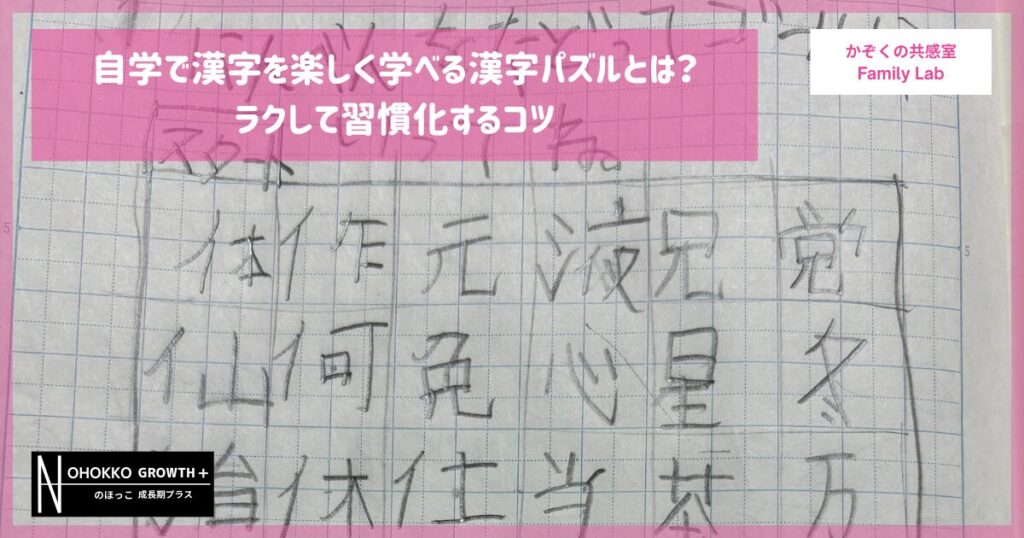 自学で漢字を楽しく学べる漢字パズルとは?
ラクして習慣化するコツ
かぞくの共感室
Family Lab
スタート
体 作 元 液 兄 覚
仙 何 免 心 星 冬
休 仕 当 茶 万
NOHOKKO GROWTH+
のほっこ 成長期プラス
5
5